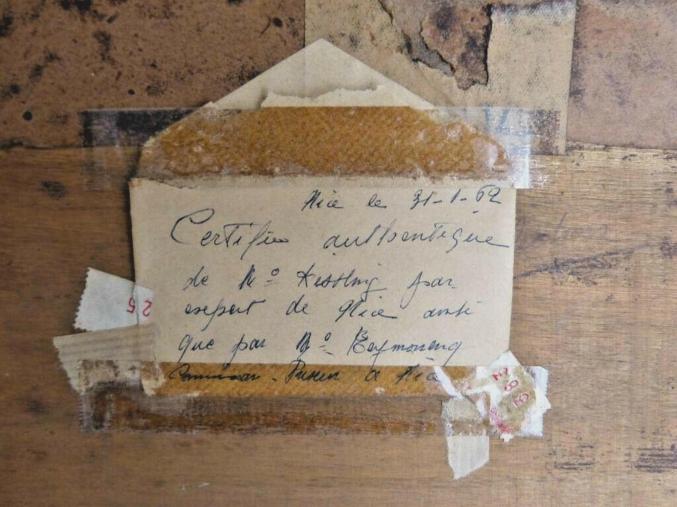 Nice le 31-1-62
Certifiée authentique
de Mo Kissling par
expert de Nice ainsi
que par Mo
de Nice
25